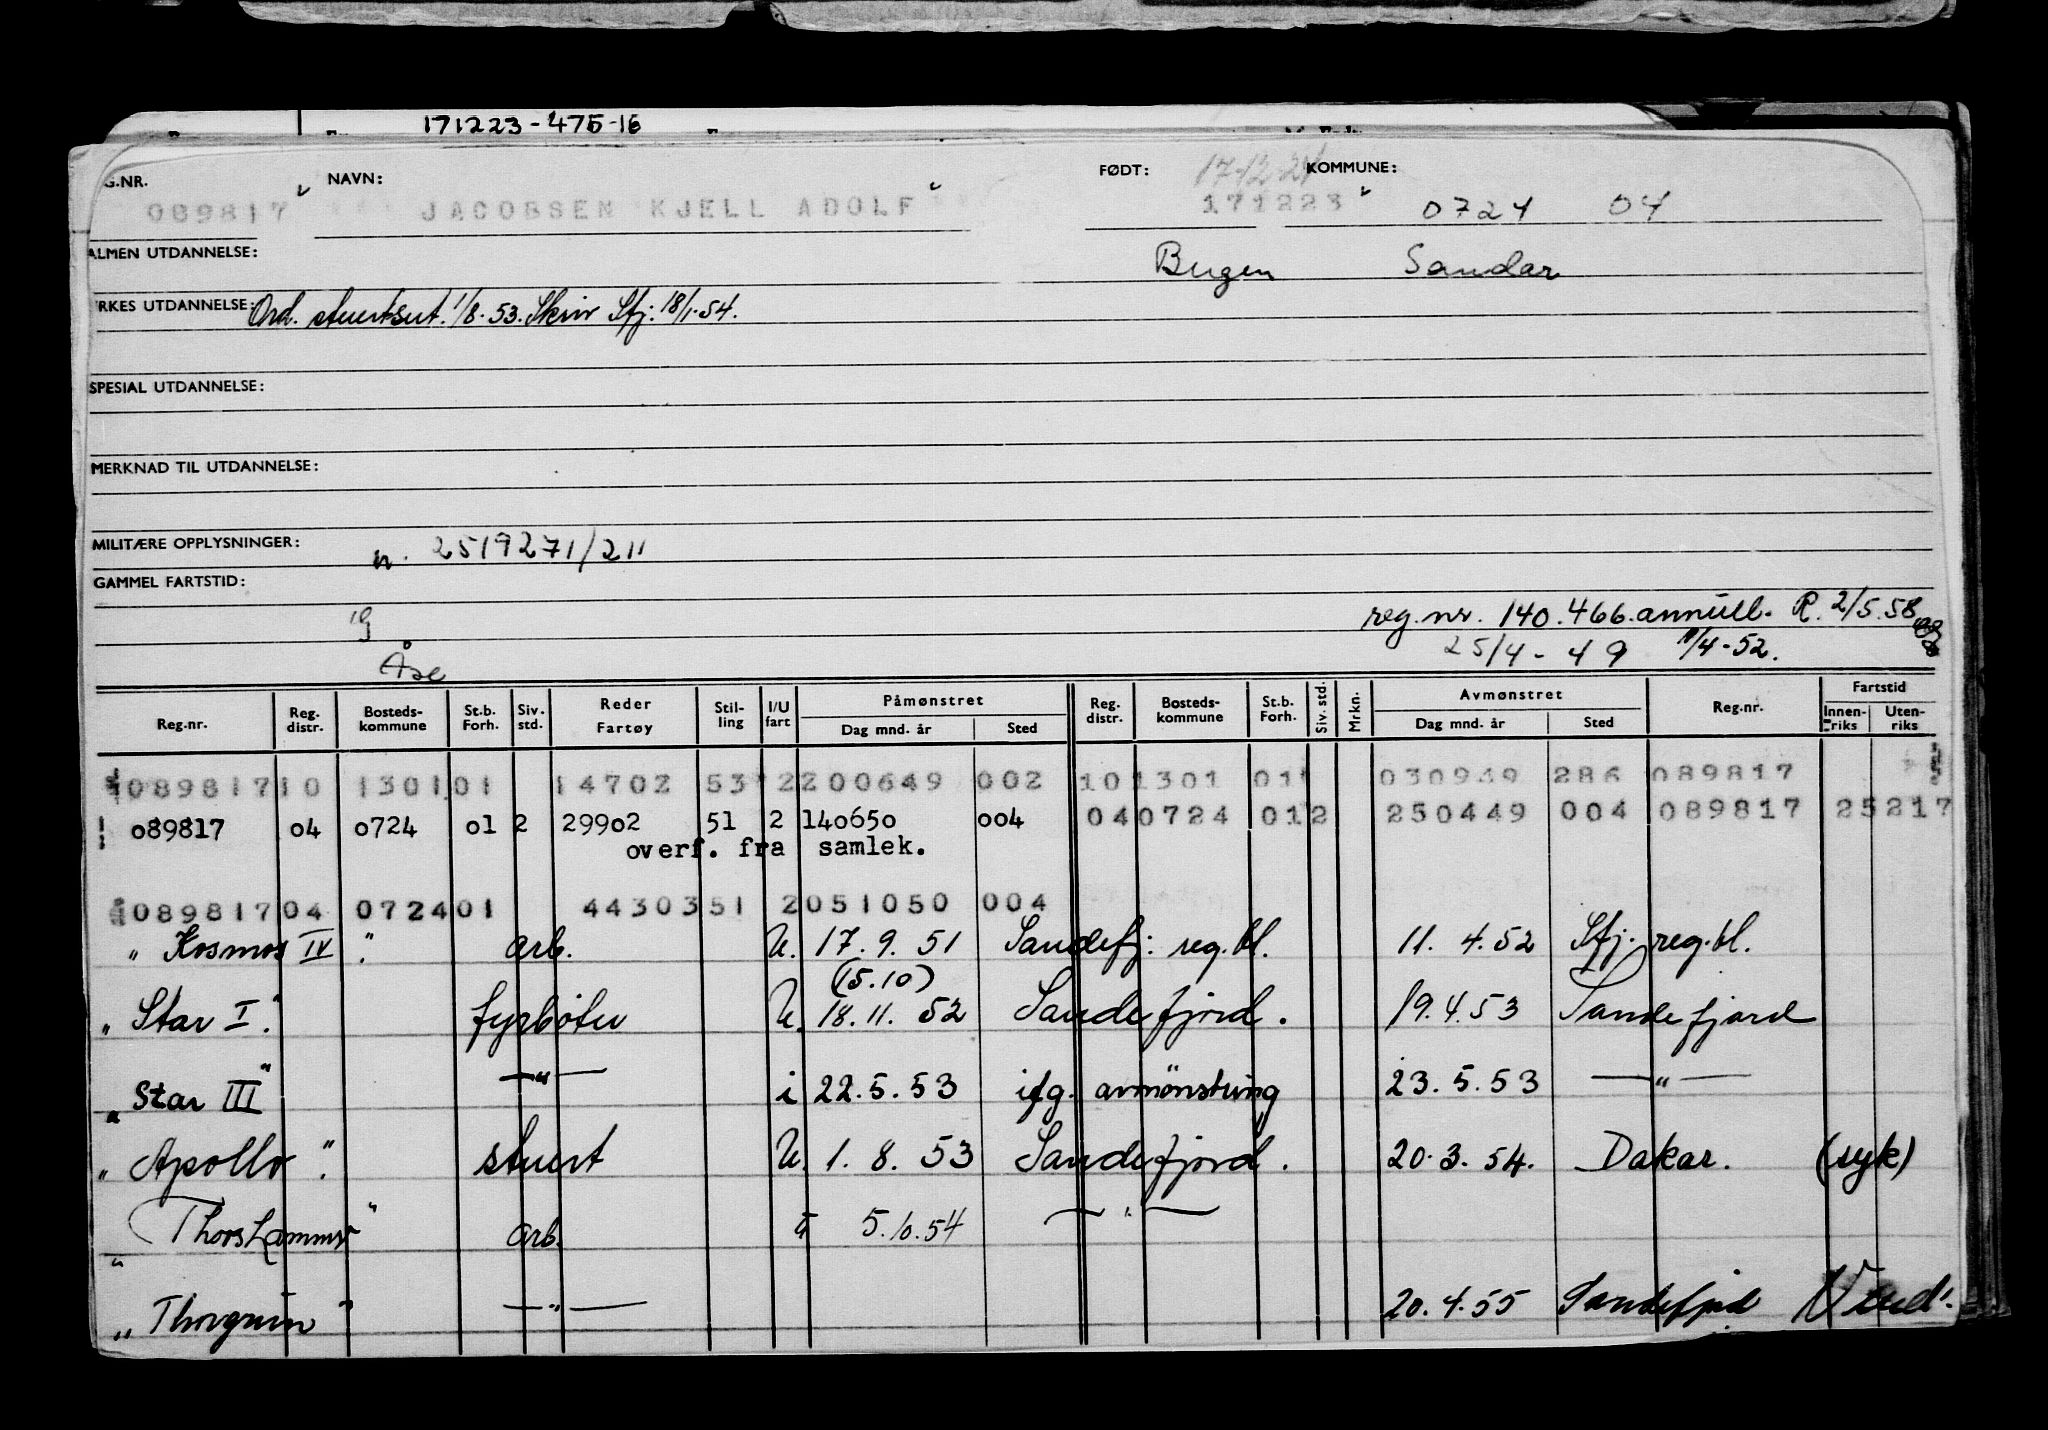 171223-475-16
G.NR. NAVN: FØDT: 17-12-24 KOMMUNE:
089817 JACOBSEN KJELL ADOLF 171223 0724 04
ALMEN UTDANNELSE: Bugen Sandar
RKES UTDANNELSE: Ord. stuertsut. 1/8.53. Skriv Sfj. 18/1.54.
SPESIAL UTDANNELSE:
MERKNAD TIL UTDANNELSE:
MILITÆRE OPPLYSNINGER: n. 2519271/211
GAMMEL FARTSTID:
19 reg.nr. 140.466.annull. R. 2/5.58
25/4-49 11/4-52.
Åse
Reg.nr. Reg. distr. Bosteds-kommune St.b. Forh. Siv. std. Reder Fartøy Stil-ling I/U fart Påmønstret Dag mnd. år Sted Reg. distr. Bosteds-kommune St.b. Forh. Siv. std. Mrkn. Avmønstret Dag mnd. år Sted Reg.nr. Fartstid Innen-riks Uten-riks
089817 10 1301 01 14702 53 2 200649 002 10 1301 01 030949 286 089817
089817 04 0724 01 2 29902 51 2 140650 004 04 0724 01 2 250449 004 089817 25217
overf. fra samlek.
089817 04 0724 01 44303 51 2 051050 004
"Kosmos IV" arb. U. 17.9.51 Sandefj. reg.bl. 11.4.52 Sfj. reg.bl.
(15.10)
"Star I." fyrbøter U. 18.11.52 Sandefjord. 19.4.53 Sandefjord
"Star III" —"— i 22.5.53 ifg. avmönstring 23.5.53 —"—
"Apollo". stuert U. 1.8.53 Sandefjord. 20.3.54. Dakar. (syk)
"Thorshammer" arb. u 5.10.54 —"—
"Thorgrim" —"— 20.4.55 Sandefjord